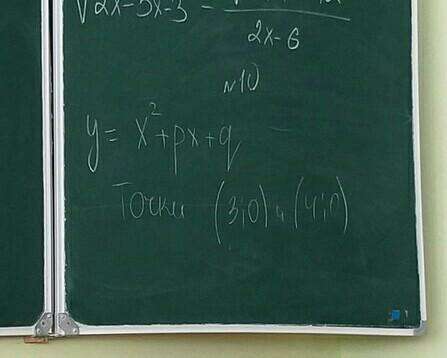 √2x-5x-3 -
2x-6
№10
y = x² + px + q
Точки (3;0) и (4;0)